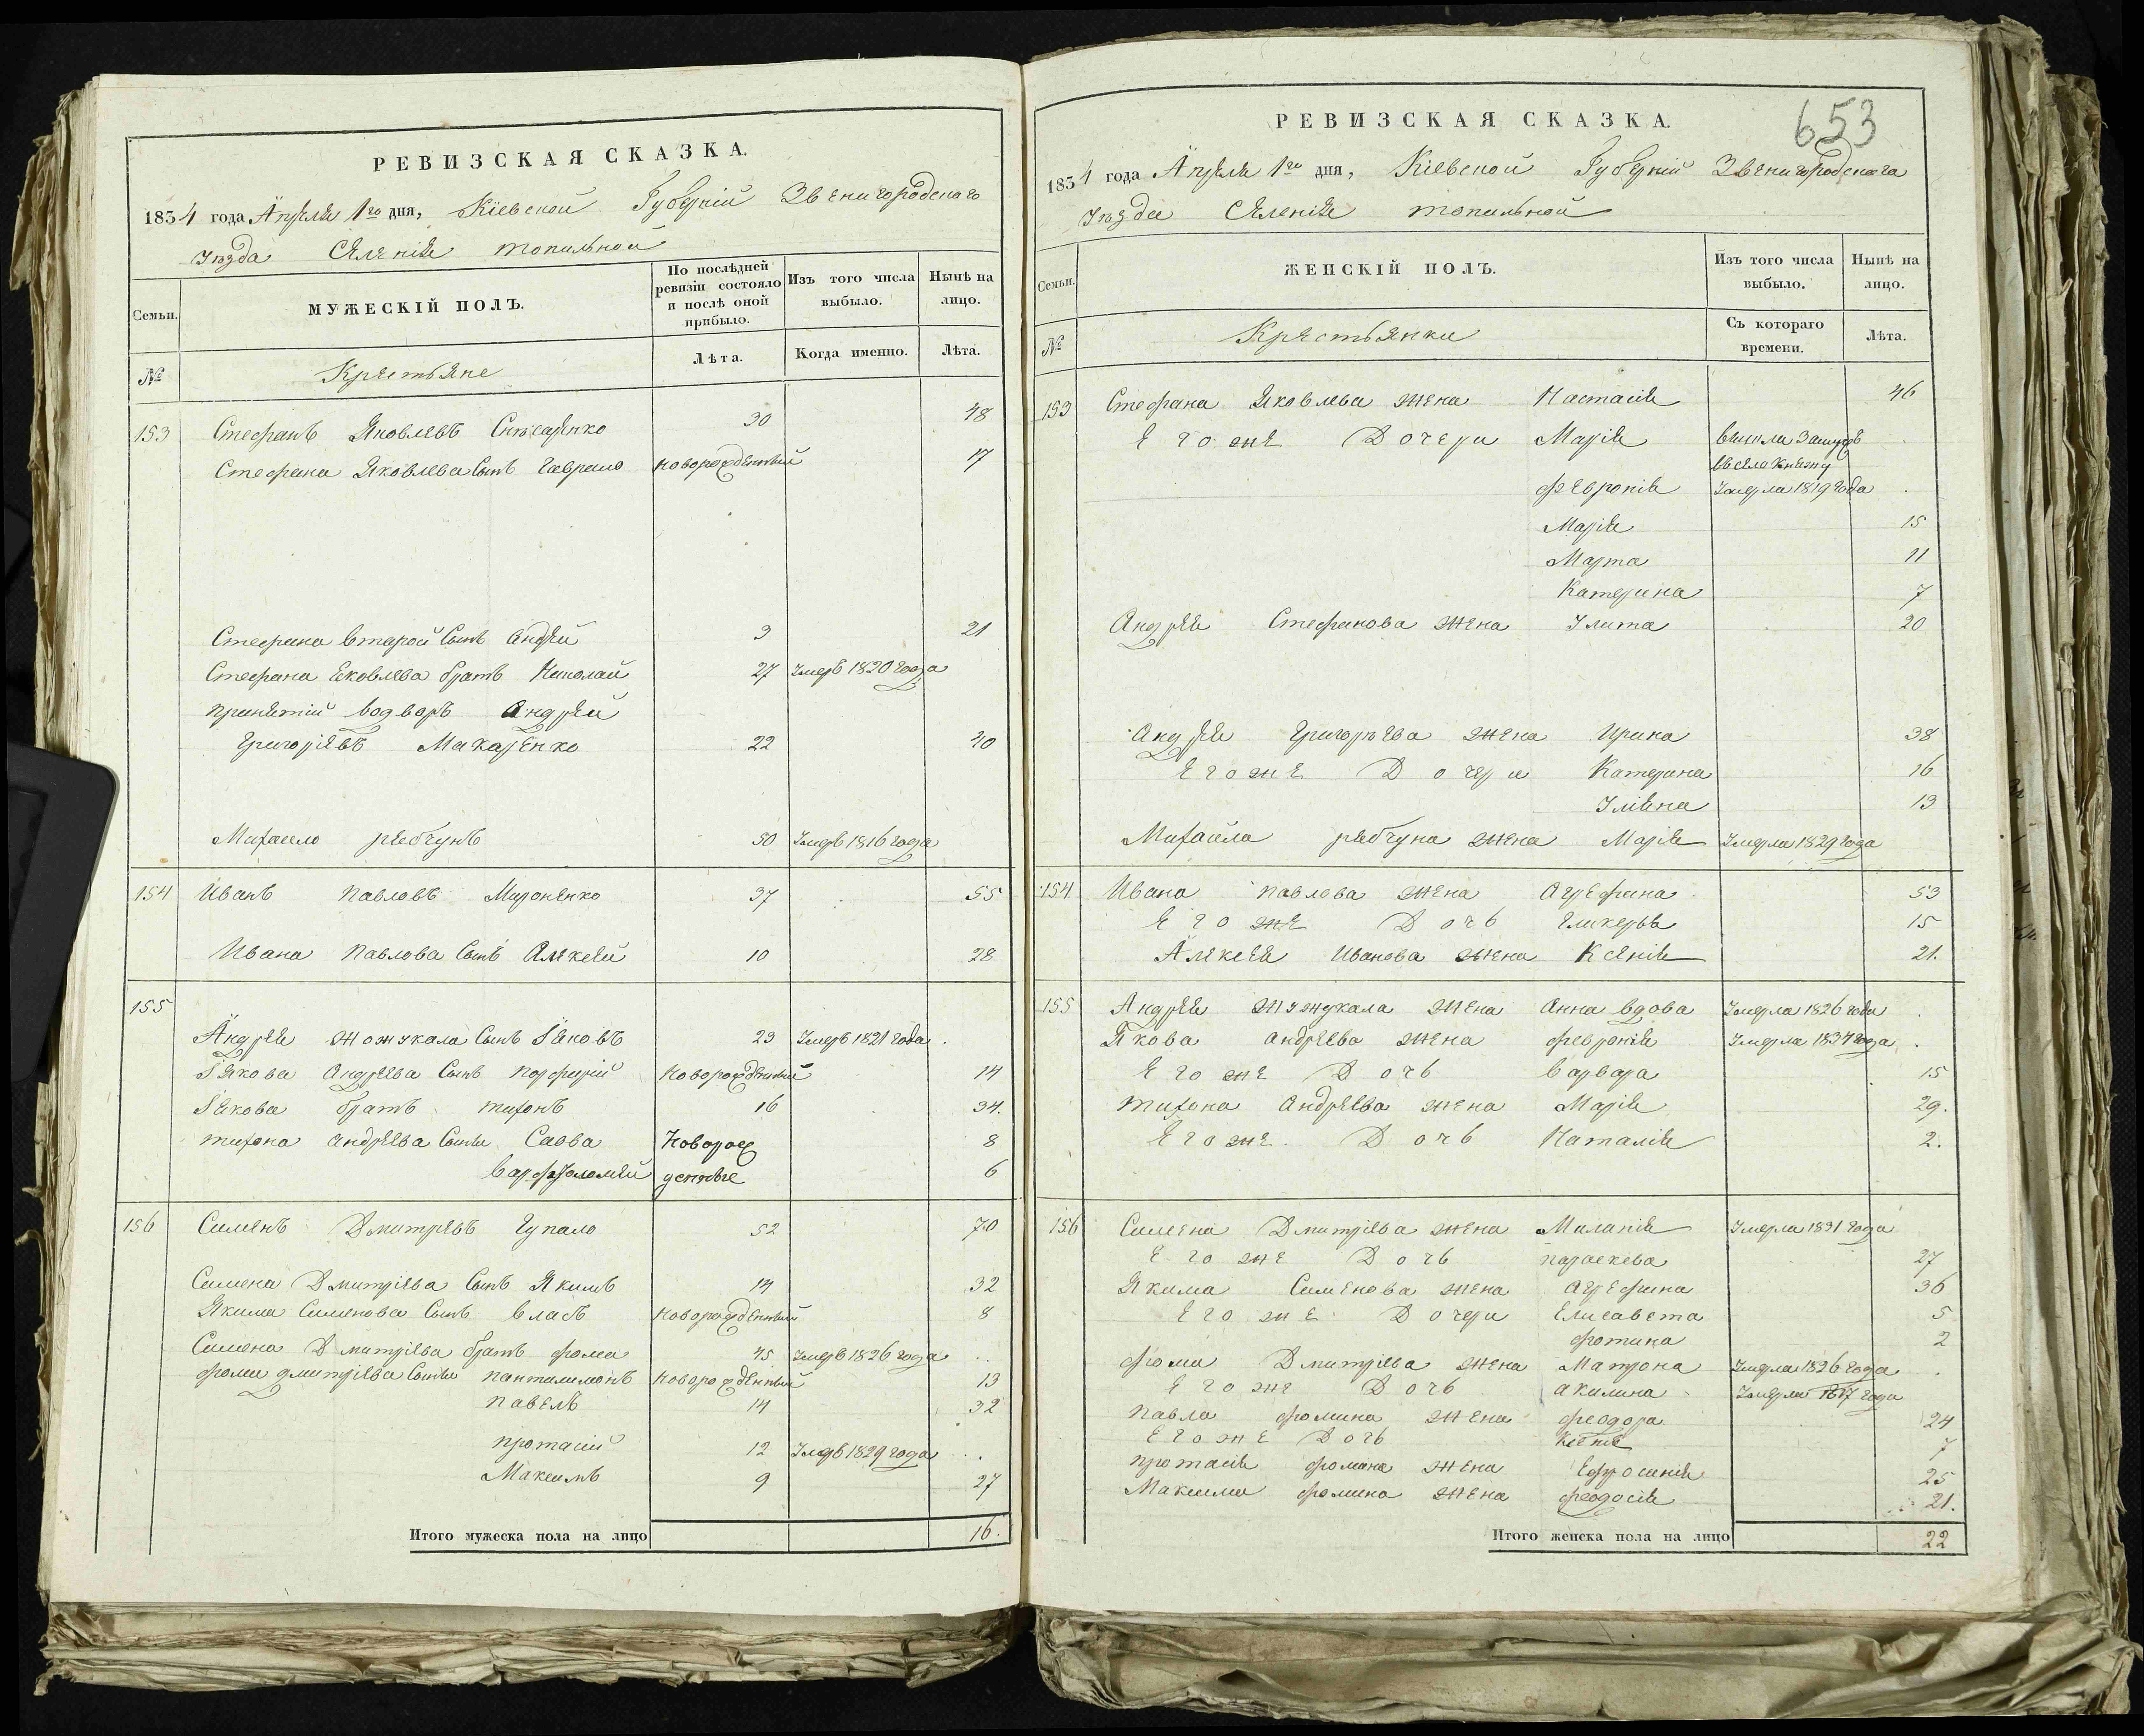 РЕВИЗСКАЯ СКАЗКА.
1834 года Апреля 1го дня, Кіевской Губерніи Звенигородскаго
Уезда Селенія топильной
Семьи.
МУЖЕСКІЙ ПОЛЪ.
По послѣдней ревизіи состояло и послѣ оной прибыло.
Изъ того числа выбыло.
Нынѣ на лицо.
№
Крестьяне
Лѣта.
Когда именно.
Лѣта.
153 Стефанъ Яковлевъ 30 48
Стефана Яковлева Сынъ Гаврило новорожденный 17
Стефана второй Сынъ андрей 3 21
Стефана Яковлева братъ Николай 27 Умеръ 1820 года
принятій водворъ Андрей
Григоріевъ Макаренко 22 40
Михаило рябчунъ 50 Умеръ 1816 года
154 Иванъ Павловъ Мироненко 37 55
Ивана Павлова Сынъ Алексей 10 28
155
Андрея жожукала Сынъ Іаковъ 23 Умеръ 1821 года.
Іякова Андреева Сынъ порфирій новорожденный 14
Іякова братъ тихонъ 16 34.
тихона андреева Сыны Савва Новорож 8
варфоломей денные 6
156 Сименъ Дмитревъ Гупало 52 70
Симена Дмитріева Сынъ Якимъ 14 32
Якима Сименова Сынъ власъ новорожденный 8
Симена Дмитріева братъ фома 45 Умеръ 1826 года
фомы дмитріева Сыны пантилимонъ новорожденный 13
павелъ 14 32
протасій 12 Умеръ 1829 года
Максимъ 9 27
Итого мужеска пола на лицо 16.
653
РЕВИЗСКАЯ СКАЗКА.
1834 года Апреля 1го дня, Кіевской Губерніи Звенигородскаго
Уезда Селенія топильной
Семьи.
ЖЕНСКІЙ ПОЛЪ.
Изъ того числа выбыло.
Нынѣ на лицо.
№
Крестьянки
Съ котораго времени.
Лѣта.
153 Стефана Яковлева жена Настасія 46
Его же Дочери Марія вышла замужъ
в село княжу
февронія Умерла 1819 года
Марія 15
Марта 11
Катерина 7
Андрея Стефанова жена Улита 20
Андрея Григорьева жена Ирина 38
Его же Дочери Катерина 16
Уліяна 13
Михайла рябчуна жена Марія Умерла 1829 года
154 Ивана павлова жена Агрефина 53
Его же Дочь Гликерья 15
Алексея Иванова жена Ксенія 21.
155 Андрея жужукала жена Анна вдова Умерла 1826 года
Якова андреева жена февронія Умерла 1834 года
Его же Дочь варвара 15
тихона Андреева жена Марія 29.
Его же Дочь Наталія 2.
156 Симена Дмитріева жена Миланія Умерла 1831 года
Его же Дочь параскева 27
Якима Сименова жена агрефина 36
Его же Дочери Елисавета 5
фотина 2
фомы Дмитріева жена Матрона Умерла 1826 года
Его же Дочь акилина Умерла 1817 года
павла фомина жена феодора 24
Его же Дочь Ксенія 7
протасія фомина жена Ефросинія 25
Максима фомина жена феодосія 21.
Итого женска пола на лицо 22